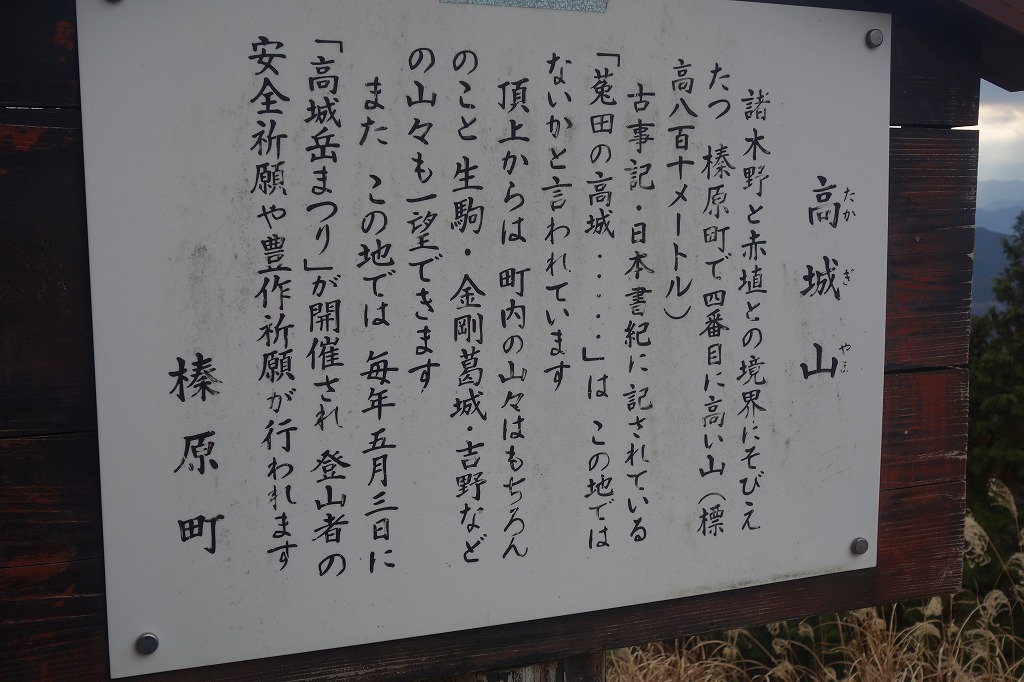 高城山
たかぎやま
諸木野と赤埴との境界にそびえ
たつ 榛原町で四番目に高い山（標
高八百十メートル）
古事記・日本書紀に記されている
「菟田の高城・・・・」は この地では
ないかと言われています
頂上からは 町内の山々はもちろん
のこと 生駒・金剛葛城・吉野など
の山々も一望できます
また この地では 毎年五月三日に
「高城岳まつり」が開催され 登山者の
安全祈願や豊作祈願が行われます
榛原町